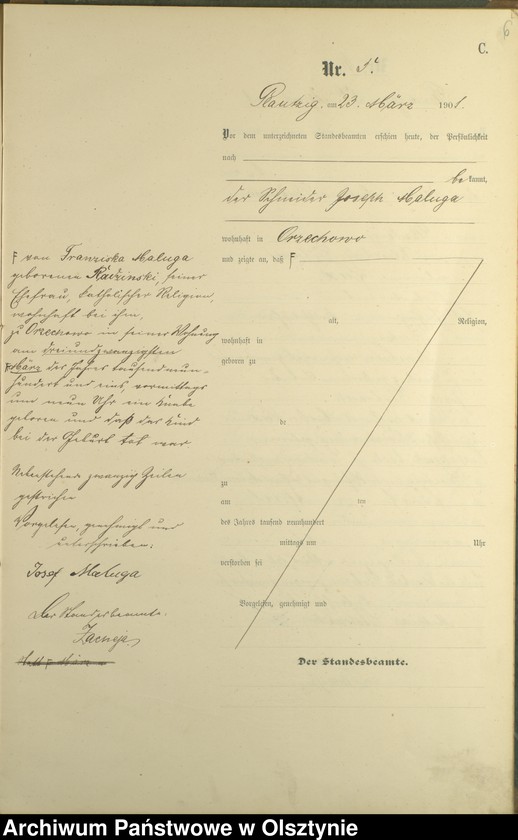 C.
6
Nr. 5.
am 23. März 1901.
Vor dem unterzeichneten Standesbeamten erschien heute, der Persönlichkeit
nach
bekannt,
der Schneider Joseph Maluga
wohnhaft in Orzechowo
und zeigte an, daß F
alt, Religion,
wohnhaft in
geboren zu
de
zu
am ten
des Jahres tausend neunhundert
mittags um Uhr
verstorben sei
Vorgelesen, genehmigt und
Der Standesbeamte.
F von Franziska Maluga
geborenen Radzinski, seiner
Ehefrau, katholischer Religion,
wohnhaft bei ihm,
zu Orzechowo in seiner Wohnung
am dreiundzwanzigsten
März des Jahres tausendneun-
hundert und eins, vormittags
um neun Uhr ein Knabe
geboren und daß das Kind
bei der Geburt tot war
Nebenstehende zwanzig Zeilen
gestrichen
Vorgelesen, genehmigt und
unterschrieben:
Josef Maluga
Der Standesbeamte.
Archiwum Państwowe w Olsztynie